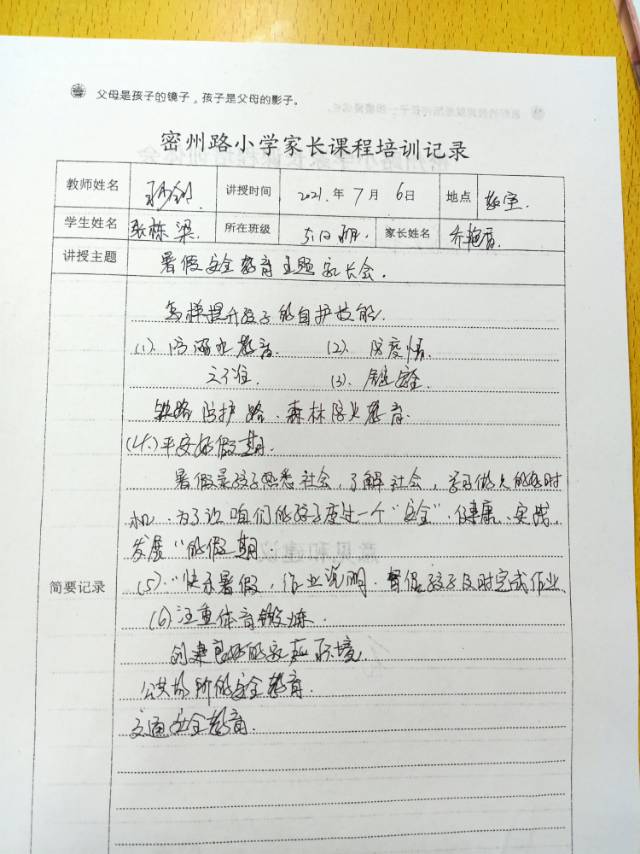 父母是孩子的镜子，孩子是父母的影子。
密州路小学家长课程培训记录
教师姓名 讲授时间 2021.年 7月 6日 地点 教室.
学生姓名 张栋梁. 所在班级 家长姓名 乔艳香.
讲授主题 暑假安全教育主题家长会.
简要记录
怎样提升孩子的自护技能.
(1). 防溺水教育. (2). 防疫情.
六不准. (3). 安全.
铁路防护路. 森林防火教育.
(4).平安好假期.
暑假是孩子熟悉社会,了解社会,学习做人的好时
机. 为了让咱们的孩子度过一个"安全"、健康、实践、
发展"的假期.
(5)."快乐暑假,作业说明. 督促孩子及时完成作业.
(6)注重体育锻炼.
创建良好的家庭环境
公共场所的安全教育.
交通安全教育.